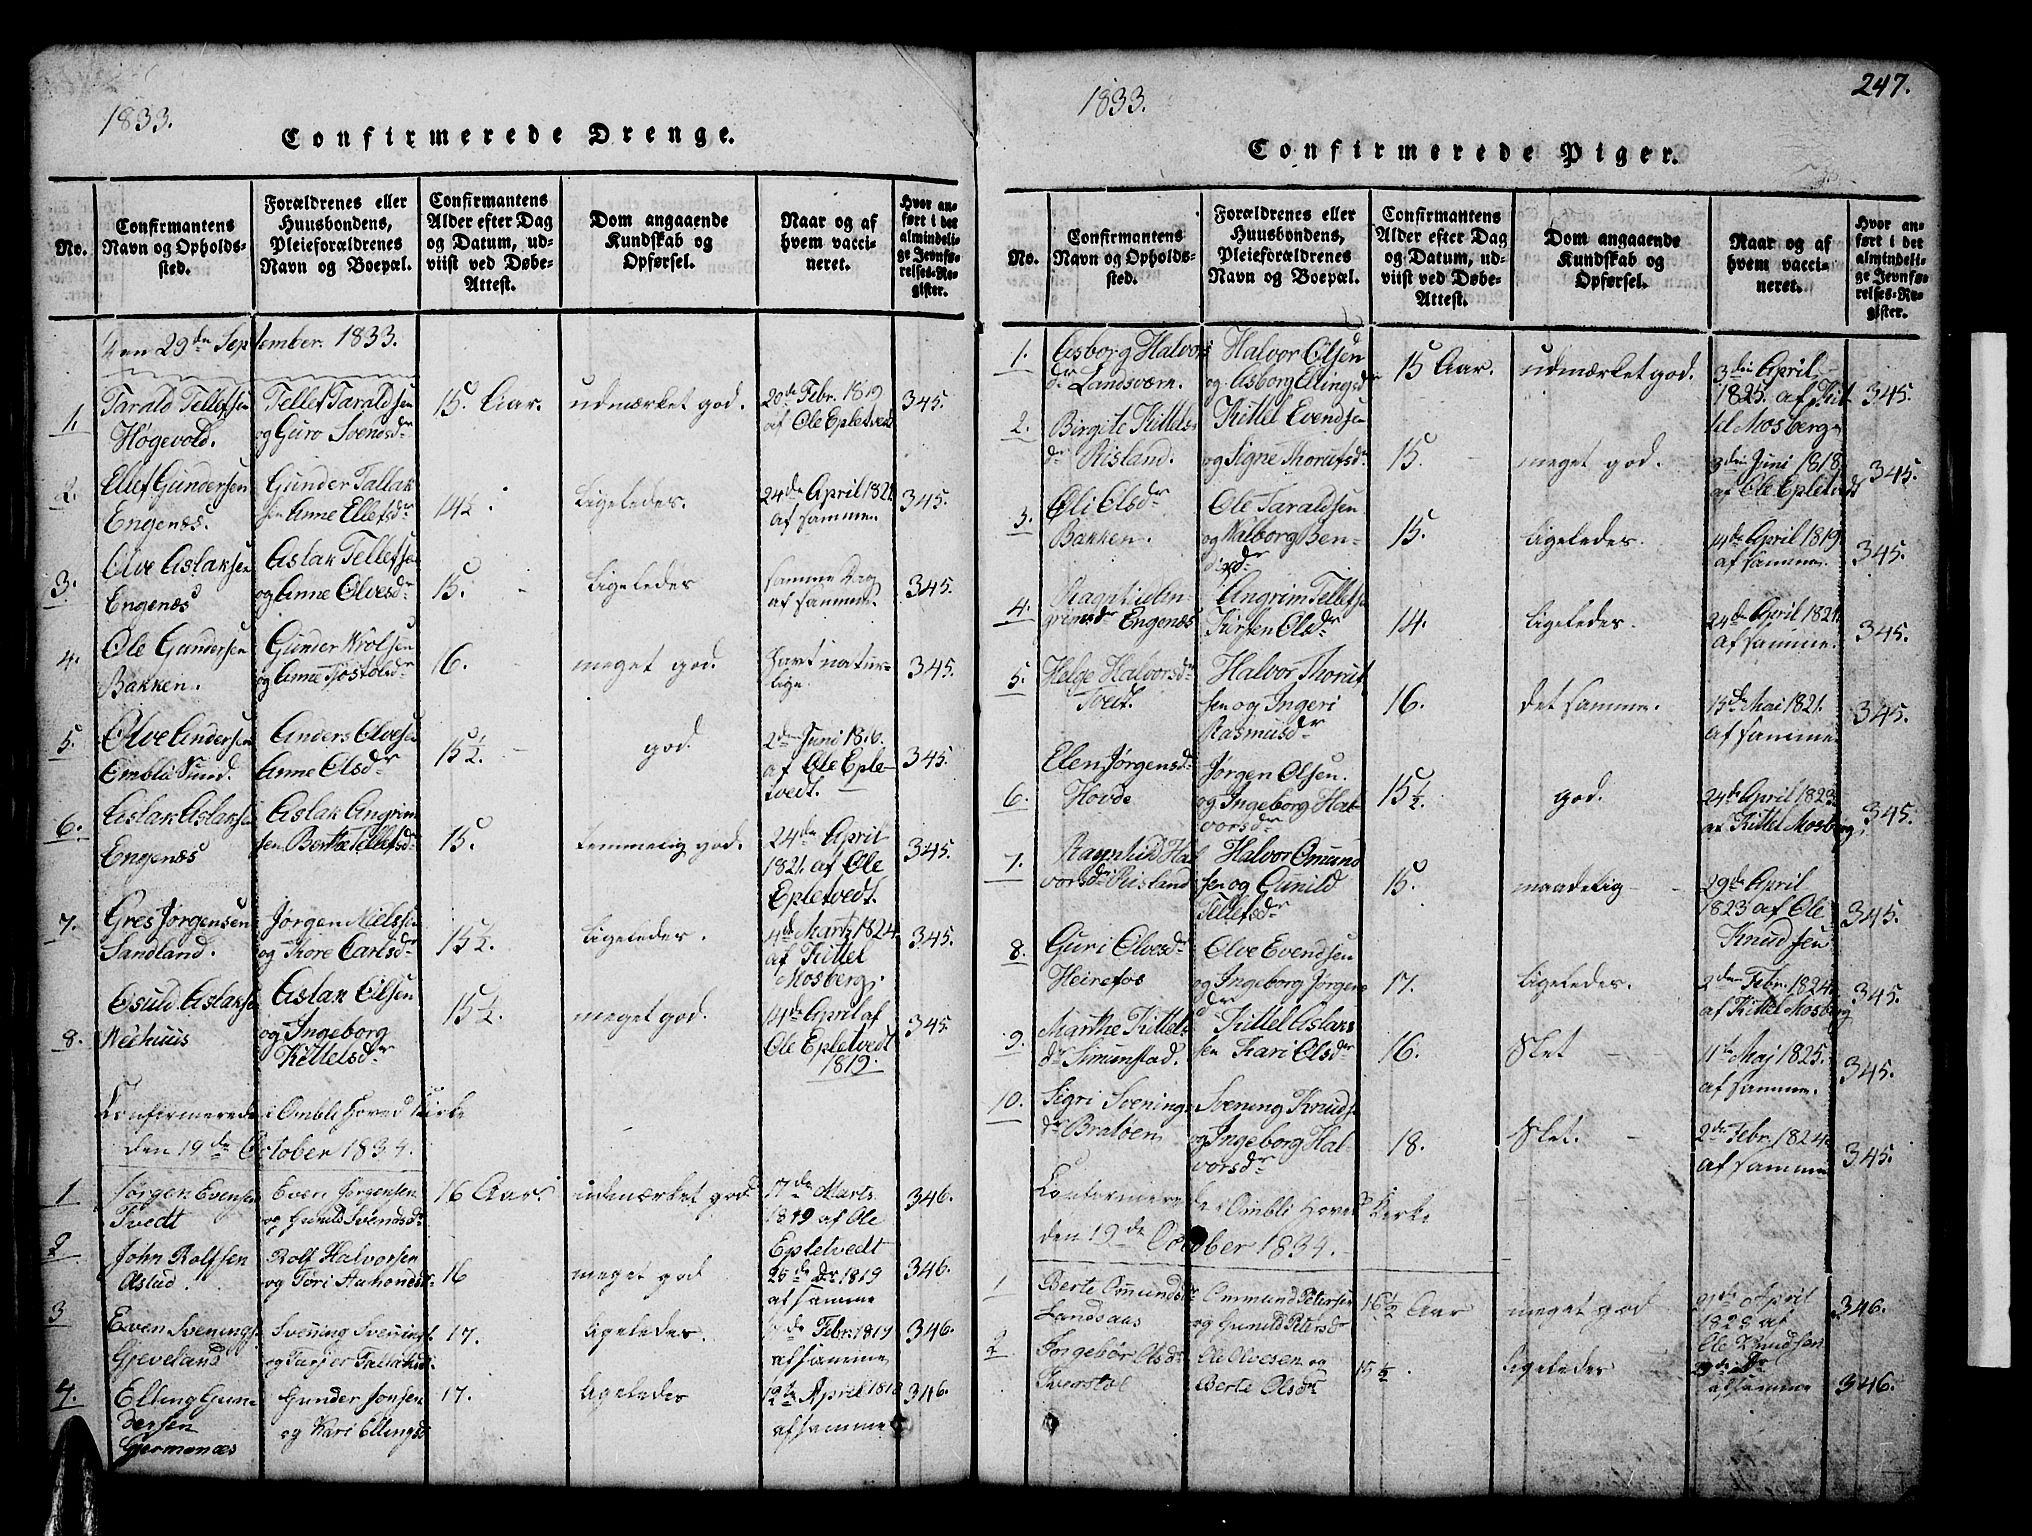 1833.
Confirmerede Drenge.
No.
Confirmantens
Navn og Opholds-
sted.
Forældrenes eller
Huusbondens,
Pleieforældrenes
Navn og Boepæl.
Confirmantens
Alder efter Dag
og Datum, ud-
viist ved Døbe-
Attest.
Dom angaaende
Kundskab og
Opførsel.
Naar og af
hvem vacci-
neret.
Hvor an-
ført i det
almindeli-
ge Jevnfø-
relses-Re-
gister.
den 29de September 1833.
1.
Tarald Tellefsen
Høgevold.
Tellef Taraldsen
og Guro Svensdr
15. Aar.
udmærket god.
20de Febr. 1819
af Ole Epletvedt
345.
2.
Ellef Gundersen
Engenæs.
Gunder Tallak
sen Anne Ellefsdr
14½.
ligeledes.
24de April 1821
af samme.
345.
3.
Olve Aslaksen
Engenæs
Aslak Tellefsen
og Anne Olvesdr
15.
ligeledes
samme Dag
af samme.
345.
4.
Ole Gundersen
Bakken.
Gunder
og Anne
16.
meget god.
havt natur-
lige.
345.
5.
Olve Andersen
Sund.
Anders Olvesen
Anne Olsdr
15½.
god.
2den Juni
af Ole Eple-
tvedt.
345.
6.
Aslak Aslaksen
Engenæs
Aslak Angrim
sen Berthe Tellefsdr
15.
temmelig god.
24de April
1821. af Ole
Epletvedt.
345.
7.
Gres Jørgensen
Sandland.
Jørgen Nielssen
og Tore Carlsdr
15½.
ligeledes.
4de Martz 1824
af Kittel
Mosberg.
345.
8.
Osuld Aslaksen
Aslak Olsen
og Ingeborg
Kittelsdr
15½.
meget god.
14de April af
Ole Epletvedt
1819.
345.
Confirmerede i Omli Hoved Kirke
den 19de October 1834.
1
Jørgen Evensen
Tvedt
Even Jørgensen
og Gunild Svendsdr
16 Aar.
udmærket god
17de Marts
1819 af Ole
Epletvedt
346.
2
John Rolfsen
Rolf Halvorsen
og Tori
16
meget god
25de Dr 1819
af samme
346.
3
Even Svenings
Gjeveland
Svening
17.
ligeledes.
Febr. 1819
af samme
346.
4.
Elling Gun
dersen
Gjermonæs
Gunder Jonsen
og Kari Ellingsdr
17.
ligeledes
12te April 1818
af samme
346.
1833.
247.
Confirmerede Piger.
No.
Confirmantens
Navn og Opholds-
sted.
Forældrenes eller
Huusbondens,
Pleieforældrenes
Navn og Boepæl.
Confirmantens
Alder efter Dag
og Datum, ud-
viist ved Døbe-
Attest.
Dom angaaende
Kundskab og
Opførsel.
Naar og af
hvem vacci-
neret.
Hvor an-
ført i det
almindeli-
ge Jevnfø-
relses-Re-
gister.
1.
Asborg Halvors
dr Landsværn.
Halvor Olsen
og Asborg Ellingsd
15 Aar.
udmærket god.
3die April
1825. af Kit
tel Mosberg
345.
2.
Birgite Kittels
dr Risland.
Kittel Evendsen
og Signe Thorufsdr
15.
meget god.
3die Juni 1818
af Ole Epletvedt
345.
3.
Øli Olsdr
Bakken.
Ole Taraldsen
og Walborg Ben-
15.
ligeledes.
14de April 1819
af samme.
345.
4.
Ragnhild An-
grimsdr Engenæs
Angrim Tellefse
Kirsten Olsdr
14.
ligeledes.
24de April 1821
af samme.
345.
5.
Helge Halvorsdr
Tveit.
Halvor Thoruf
sen og Ingeri
Rasmusdr
16.
det samme.
15de Mai 1821.
af samme
345.
6.
Elen Jørgensdr
Hovde
Jørgen Olsen.
og Ingeborg Hal-
vorsdr
15½.
god.
24de April 1823
af Kittel Mosberg.
345.
7.
Ragnhild Hal
vorsdr Risland
Halvor Omund
sen og Gunild
Tellefsdr
15.
maadelig
29de April
1823 af Ole
Knudsen
345.
8.
Guri Olvesdr
Heirefos
Olve Evendsen
og Ingeborg Jørgens
dr
17.
ligeledes.
2den Febr. 1824
af Kittel Mosberg
345.
9.
Marthe Kittels
dr Simunstad.
Kittel Aslak
sen Kari Olsdr
16.
Slet
11te Maj 1825.
af samme.
345.
10.
Sigri Svenings
dr Bratben
Svening Knuds
og Ingeborg Hal-
vorsdr
18.
Slet.
2den Febr. 1824.
af samme
345.
Confirmerede i Omli Hoved Kirke
den 19de October 1834.
1
Berte Omundsdr
Landsaas
Ommund Petersen
og Gunild Petersdr
16½ Aar
meget god
21de April
af
Ole Knudsen
346.
2
Olsdr
Ole Olvesen og
Berte Olsdr
15½.
ligeledes
af samme
346.